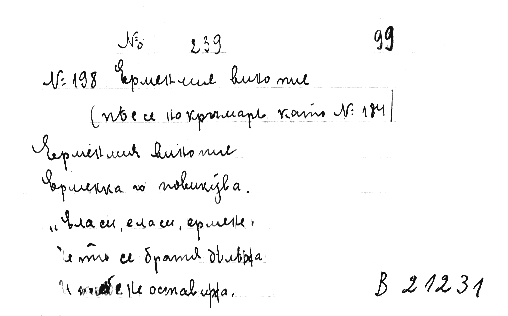 № 239 99
№ 198 Ерменлия вино пие
(пѣе се по кръмаръ като № 184)
Ерменлия вино пие
Ерменка го повикува.
„Еласи, еласи, ермене,
Че то се братя дѣлѣха
И не оставиха.
В 21231